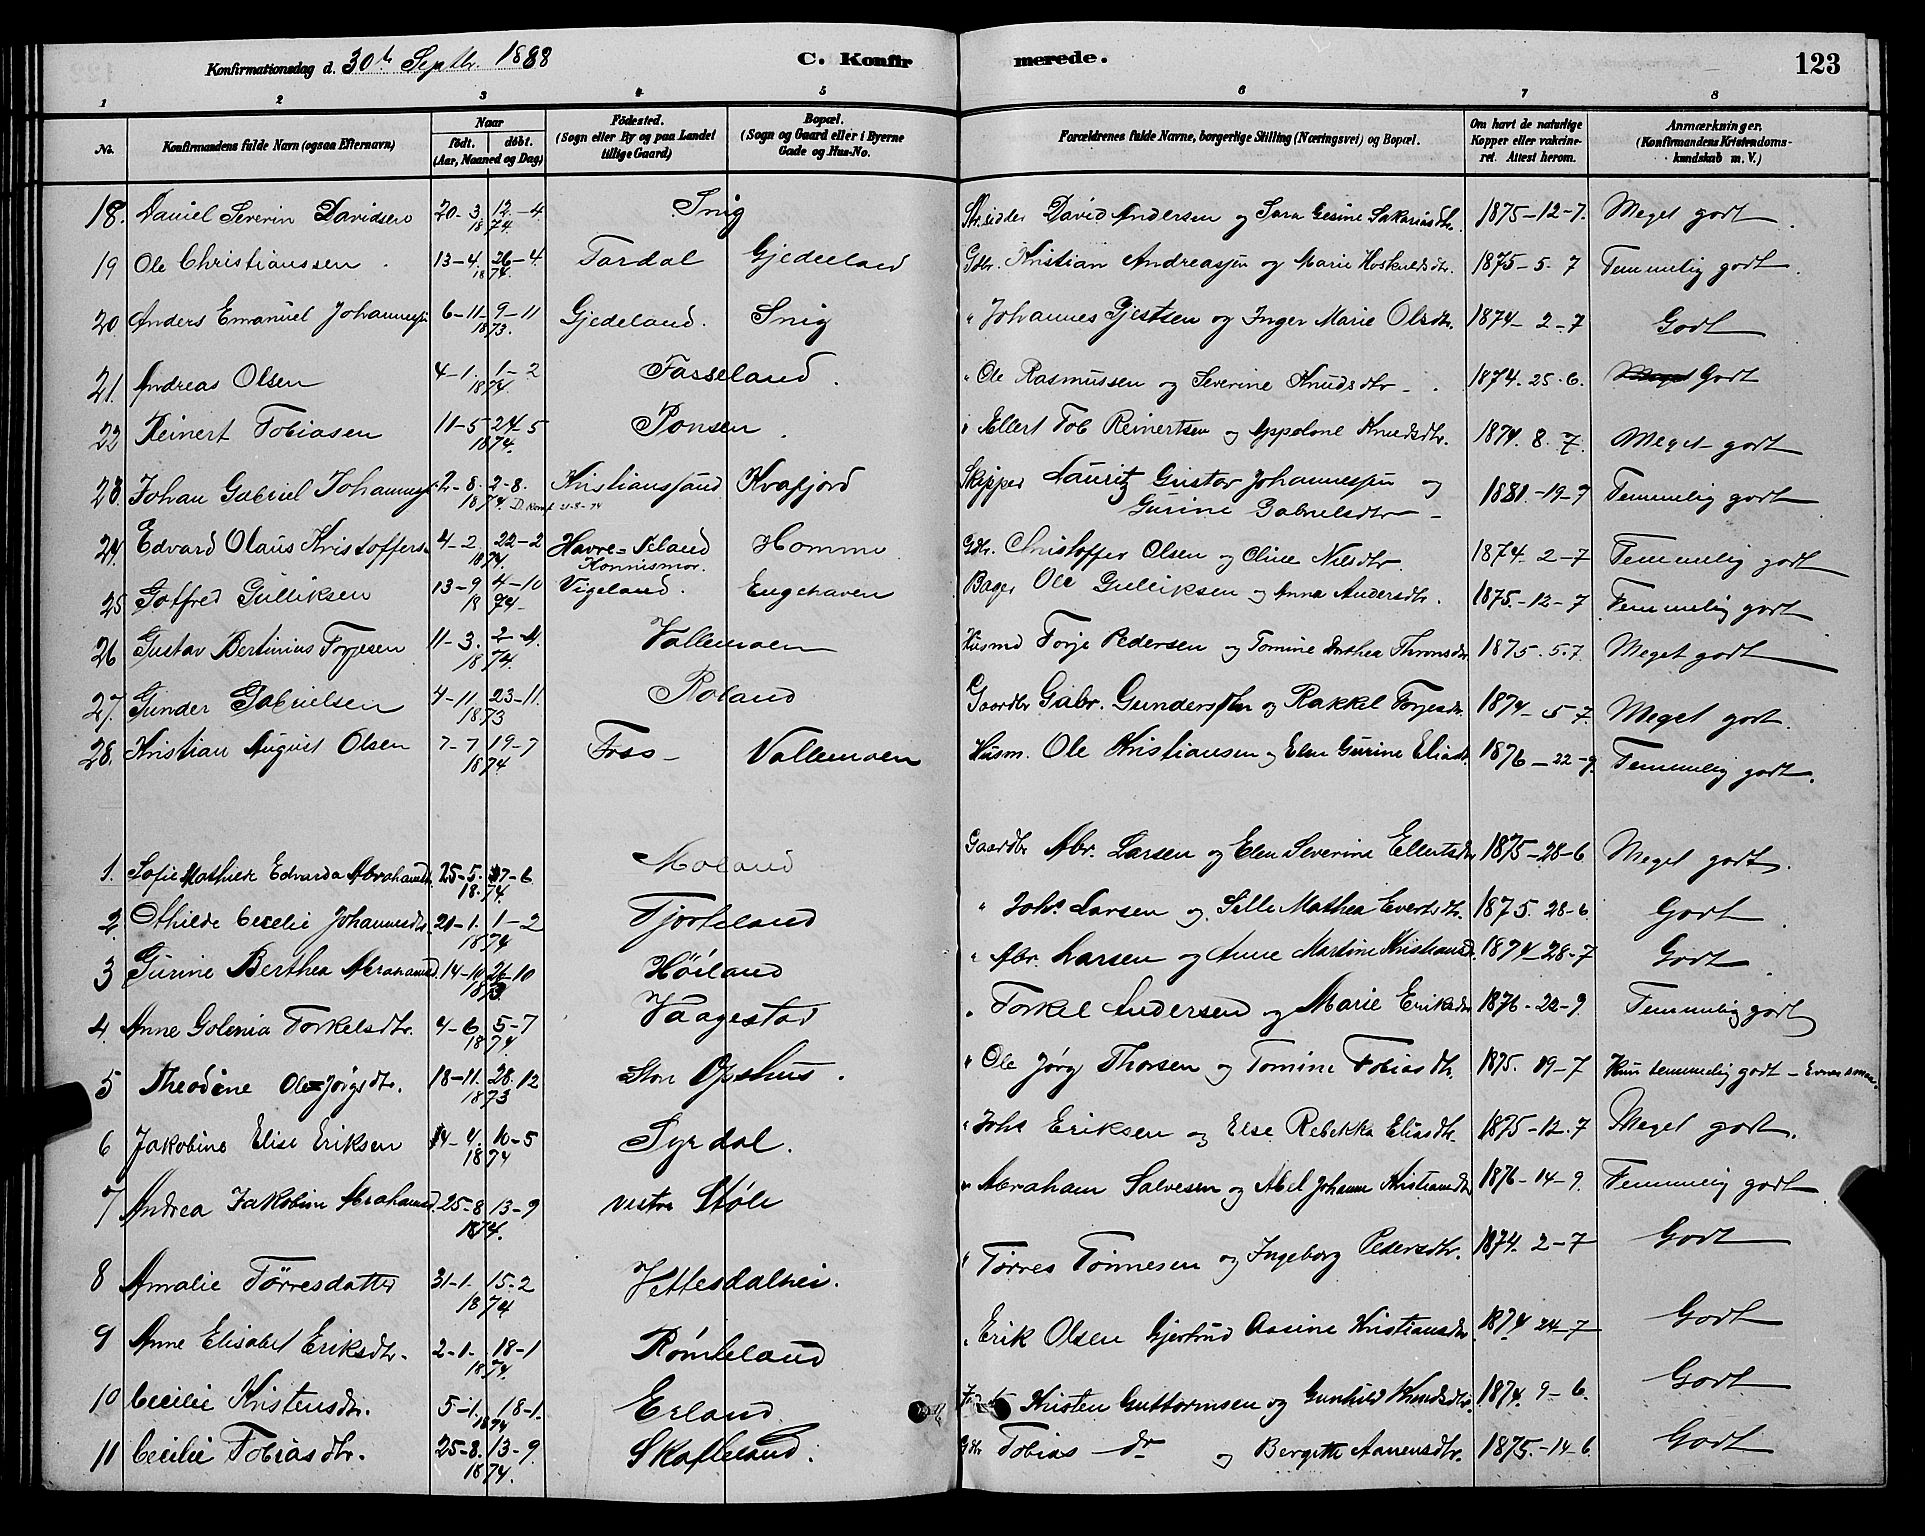 Konfirmationsdag d. 30te Septbr. 1888
C. Konfirmerede.
123
1 2 3 4 5 6 7 8
No.
Konfirmandens fulde Navn (ogsaa Efternavn)
Naar
født. døbt.
(Aar, Maaned og Dag)
Födested.
(Sogn eller By og paa Landet tillige Gaard)
Bopæl.
(Sogn og Gaard eller i Byerne Gade og Hus-No.
Forældrenes fulde Navne, borgerlige Stilling (Næringsvei) og Bopæl.
Om havt de naturlige Kopper eller vakcineret. Attest herom.
Anmærkninger.
(Konfirmandens Kristendomskundskab m. V.)
18. Daniel Severin Davidsen 20-3. 12-4. 1874. Snig David Andersen og Sara Gesine Sakariasdtr. 1875-12-7. Meget godt
19 Ole Christianssen 13-4. 26-4. 1874. Tardal Gjedeland Gdbr. Kristian Andreassen og Marie Hoskuldsdtr. 1875-5-7 Temmelig godt
20. Anders Emanuel Johanness. 6-11 9-11 1873. Gjedeland. Snig " Johannes Gjestsen og Inger Marie Olsdtr. 1874-2-7 Godt
21. Andreas Olsen 4-1. 1-2 1874. Fasseland. " Ole Rasmussen og Severine Knudsdtr 1874. 25-6. Meget Godt
22 Reinert Tobiasen 11-5 24-5 1874. Ponsen " Ellert Tob Reinertsen og Appolone Knudsdtr. 1874. 8. 7. Meget godt
23. Johan Gabriel Johanness. 2-8. 2-8. 1874. Kristianssand Kvafjord Skipper Lauritz Gustav Johannessen og Gurine Gabrielsdtr 1881-19-9 Temmelig godt
24. Edvard Olaus Kristoffers. 4-2. 22-2 1874. Homme Gdbr. Christoffer Olsen og Oline Nilsdtr. 1874. 2-7 Temmelig godt
25 Gotfred Gulliksen 13-9 4-10 1874- Vigeland. Engehaven Bager Ole Gulliksen og Anna Andersdtr. 1875.-12-7 Temmelig godt.
26 Gustav Bertinius Torjesen 11-3. 2-4. 1874. Vallemoen Husmd Torje Pedersen og Tomine Dorthea Thronsdtr 1875. 5.7. Meget godt
27. Gunder Gabrielsen 4-11. 23-11. 1873 Roland Gaardbr Gabr. Gundersen og Rakkel Torjesdtr. 1874-5-7. Meget godt.
28. Kristian August Olsen 7-7 19-7 1874 Foss Vallemoen Husm. Ole Kristiansen og Elen Gurine Eliasdt. 1876-22-9. Temmelig godt.
1. Sofie Mathilde Edvarda Abrahamsd. 25-5. 27-6. 1874. Moland Gaardbr Abr. Larsen og Elen Severine Ellertsdtr 1875-28-6 Meget godt.
2. Othilde Cecelie Johannesdtr. 21-1. 1-2 1874 Tjorteland " Johs Larsen og Sille Mathea Evertsdtr. 1875. 28-6. Godt
3 Gurine Berthea Abrahamsd. 14-10 26-10 1873. Höiland " Abr. Larsen og Anne Martine Kristiansd. 1874-28-7 Godt
4. Anne Golenia Torkelsdtr. 4-6. 5-7 1874. Vaagestad " Torkel Andersen og Marie Eriksdtr 1876-22-9 Temmelig godt
5 Theodine Ole Jörgsdtr. 18-11. 28. 12 1873 Stor Opshus. " Ole Jörg Thorsen og Tomine Tobiasdtr. 1875. 19-7 Kun temmelig godt
6 Jakobine Elise Eriksen 14-4. 10-5 1874 Syrdal. " Johs Eriksen og Else Rebekka Eliasdtr. 1875-12.7 Meget godt.
7 Andrea Jakobine Abrahamsd. 25-8 13-9 1874. vestre Støle " Abraham Salvesen og Abel Johanne Kristiansdtr 1876-14-9. Temmelig godt
8 Amalie Törresdatter 31-1. 15-2 1874 Vettesdalhei. " Törres Tönnesen og Ingeborg Pedersdtr. 1874. 2-7 Godt
9 Anne Elisabet Eriksdtr. 2-1. 18-1 1874. Römteland " Erik Olsen Gjertrud Aasine Kristiansdtr. 1874 24-7 Godt
10 Cecilie Kristensdtr. 5-1. 18-1. 1874 Erland Kristen Guttormsen og Gunhild Knudsdtr. 1874. 9-6. Godt
11 Cecilie Tobiasdtr. 25-8. 13-9. 1874. Skofteland. Gdbr Tobias og Bergitte Aanensdtr. 1875.-14-6. Godt